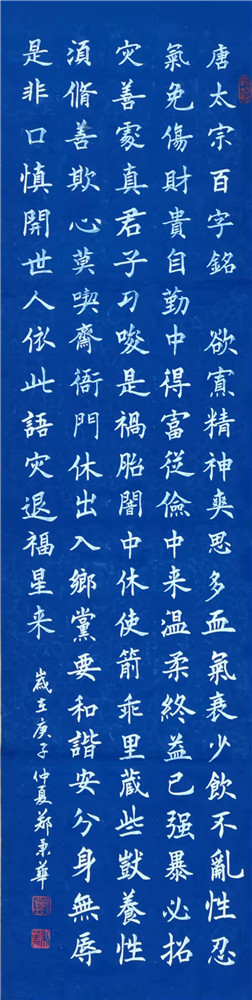 唐太宗百字銘 欲寡精神爽思多血氣衰少飲不亂性忍
氣免傷財貴自勤中得富従儉中来温柔終益己强暴必招
灾善處真君子刁唆是禍胎闇中休使箭乖里蔵些獃養性
湏脩善欺心莫喫齋衙門休出入鄉黨要和諧安分身無辱
是非口慎開世人依此語灾退福星来
歲在庚子仲夏鄭東華